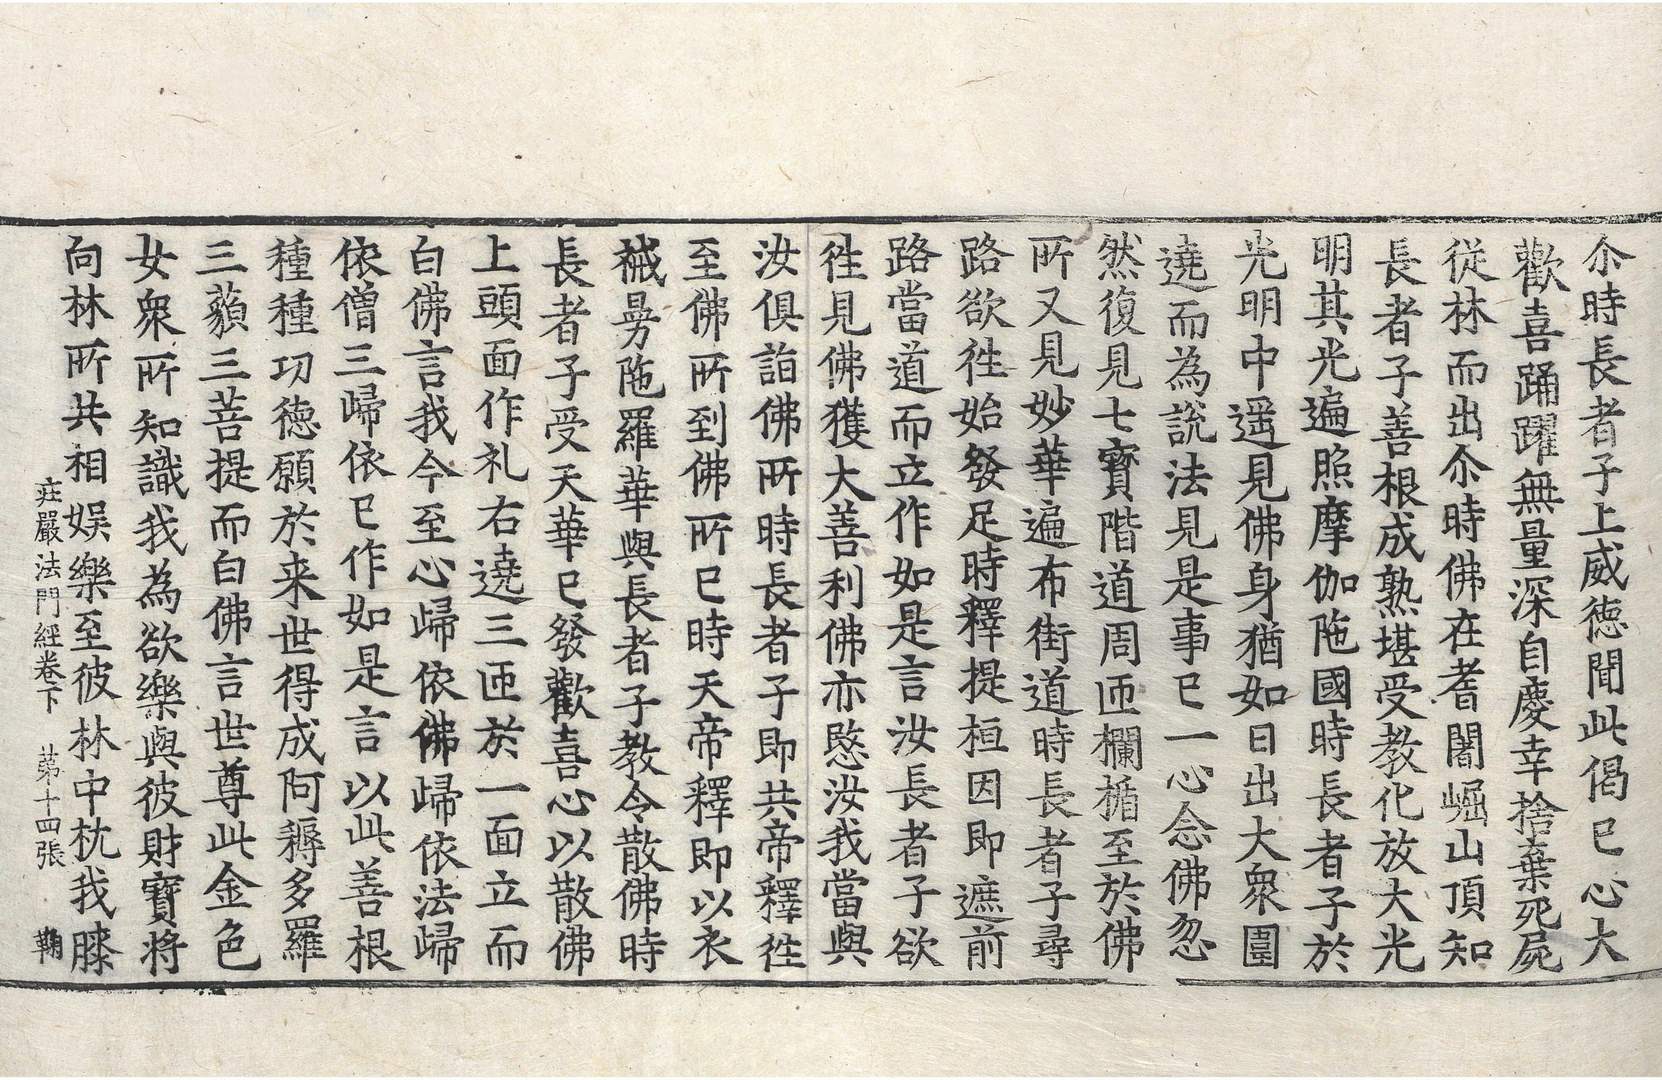 尒時長者子上威德聞此偈已心大
歡喜踊躍無量深自慶幸捨棄死屍
從林而出尒時佛在耆闍崛山頂知
長者子善根成熟堪受教化放大光
明其光遍照摩伽陁國時長者子於
光明中遥見佛身猶如日出大衆圍
遶而為說法見是事已一心念佛忽
然復見七寳階道周匝欄楯至於佛
所又見妙華遍布街道時長者子尋
路欲徃始發足時釋提桓因即遮前
路當道而立作如是言汝長者子欲
徃見佛獲大善利佛亦愍汝我當與
汝俱詣佛所時長者子即共帝釋徃
至佛所到佛所已時天帝釋即以衣
裓曼陁羅華與長者子教令散佛時
長者子受天華已發歡喜心以散佛
上頭面作礼右遶三匝於一面立而
白佛言我今至心歸依佛歸依法歸
依僧三歸依已作如是言以此善根
種種功德願於来世得成阿耨多羅
三藐三菩提而白佛言世尊此金色
女衆所知識我為欲樂與彼財寳将
向林所共相娱樂至彼林中枕我膝
庄嚴法門經卷下 苐十四張 鞠